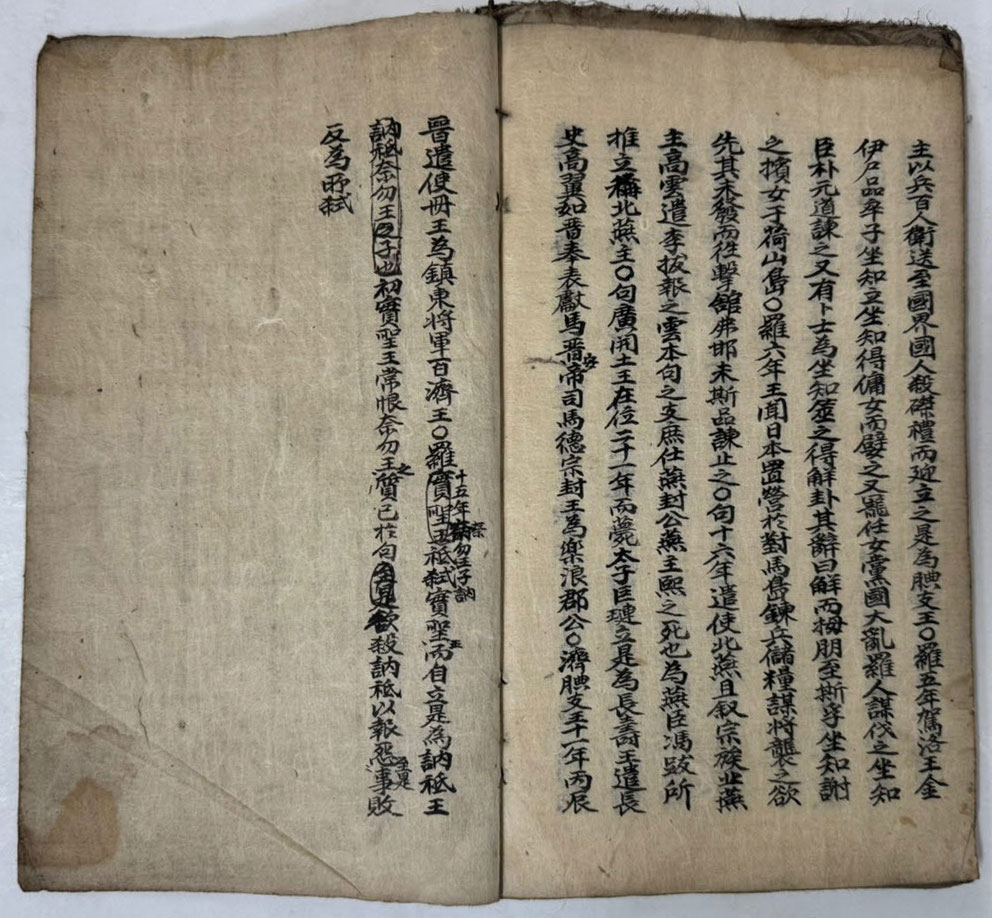 主以兵百人衛送至國界國人殺磔禮而迎立之是為腆支王〇羅五年駕洛王金
伊尸品卒子坐知立坐知得傭女而嬖之又寵任女黨國大亂羅人謀伐之坐知
臣朴元道諫之又有卜士為坐知筮之得解卦其辭曰解而拇朋至斯孚坐知謝
之擯女于荷山島〇羅六年王聞日本置營於對馬島鍊兵儲糧謀將襲之欲
先其未發而往擊舘弗邯未斯品諫止之〇句十六年遣使北燕且叙宗族北燕
主高雲遣李拔報之雲本句之支庶仕燕封公燕王熙之死也為燕臣馮跋所
推立稱北燕主〇句廣開土王在位二十一年而薨太子巨璉立是為長壽王遣長
史高翼如晋奉表獻馬晋安帝司馬德宗封王為樂浪郡公〇濟腆支王十一年丙辰
晋遣使冊王為鎮東将軍百濟王〇羅實聖王祗弑實聖王而自立是為訥祗王
十五年奈勿王子訥
訥祗奈勿王之子也初實聖王常恨奈勿王之質己於句欲殺訥祗以報怨至是事敗
反為所弑